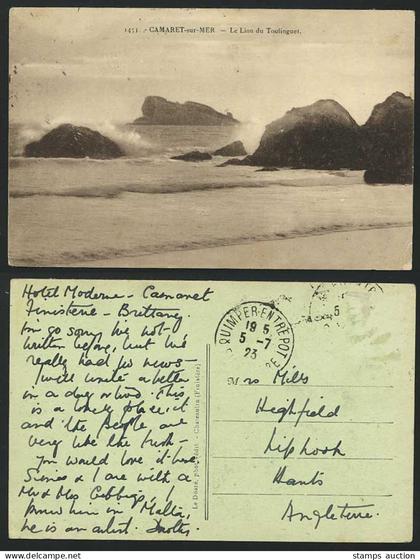 1453. - CAMARET-sur-MER - Le Lion du Toulinguet.
Hotel Moderne - Camaret
Finisterre - Brittany.
I'm so sorry I've not
written before, but I've
really had no news-
will write a letter
in a day or two. This
is a lovely place, it
and the people, are
very like the Irish-
you would love it here.
& I are with a
Mr & Mrs I
knew him in "Malta,
he is an artist.
QUIMPER-ENTREPOT
19 5
5 -7
23
5
Mrs Mills
Highfield
Liphook
Hants
Angleterre.
Le Doaré, phot.-édit. - Châteaulin (Finistère)
source: stamps auctions